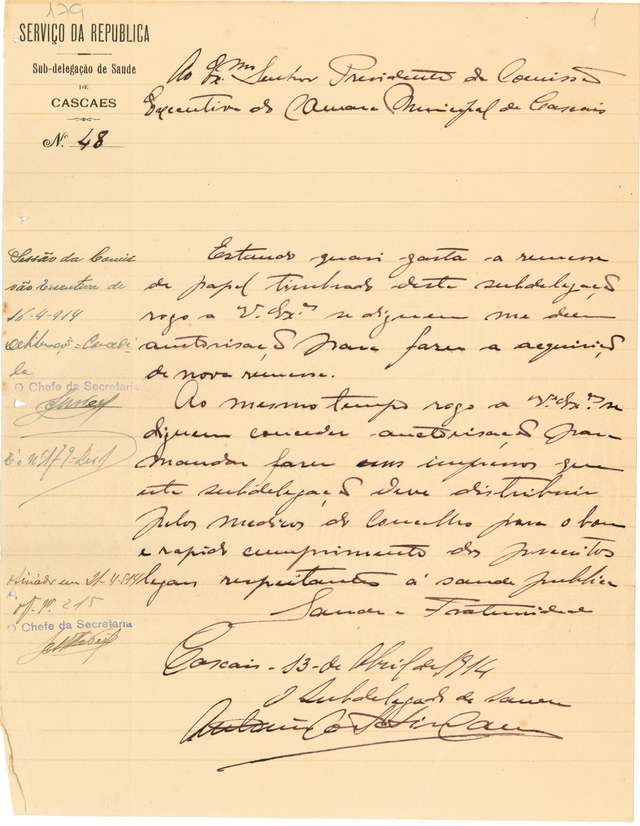 179
1
SERVIÇO DA REPUBLICA
Sub-delegação de Saude
DE
CASCAES
N.º 48
Ao Ex.mo Senhor Presidente da Comissão
Executiva da Camara Municipal de Cascais
Sessão da Comis
são Executiva de
16-4-914
O Chefe da Secretaria
of. nº 215
O Chefe da Secretaria
Estando quasi gasta a remessa
de papel timbrado desta subdelegação
rogo a V. Ex.as se dignem me deem
autorisação para fazer a acquisição
de nova remessa.
Ao mesmo tempo rogo a V.as Ex.as se
dignem conceder auctorisação para
mandar fazer uns impressos que
esta subdelegação deve distribuir
pelos medicos do concelho para o bom
e rapido cumprimento dos preceitos
legais respeitantes á saude publica
Saude e Fraternidade
Cascais - 13 - de Abril de 1914
O Subdelegado de saude